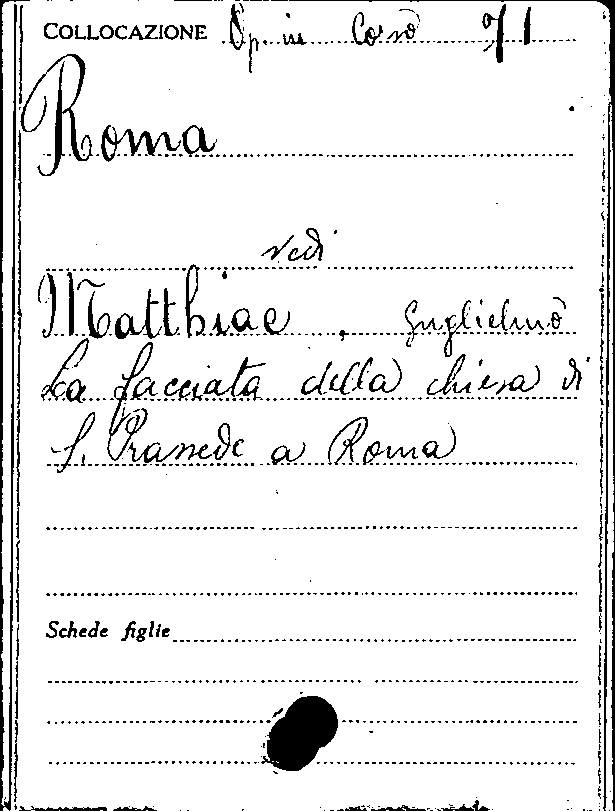 COLLOCAZIONE Op. in Corso
Roma
vedi
Matthiae, Guglielmo
La facciata della chiesa di
S. Prassede a Roma
Schede figlie